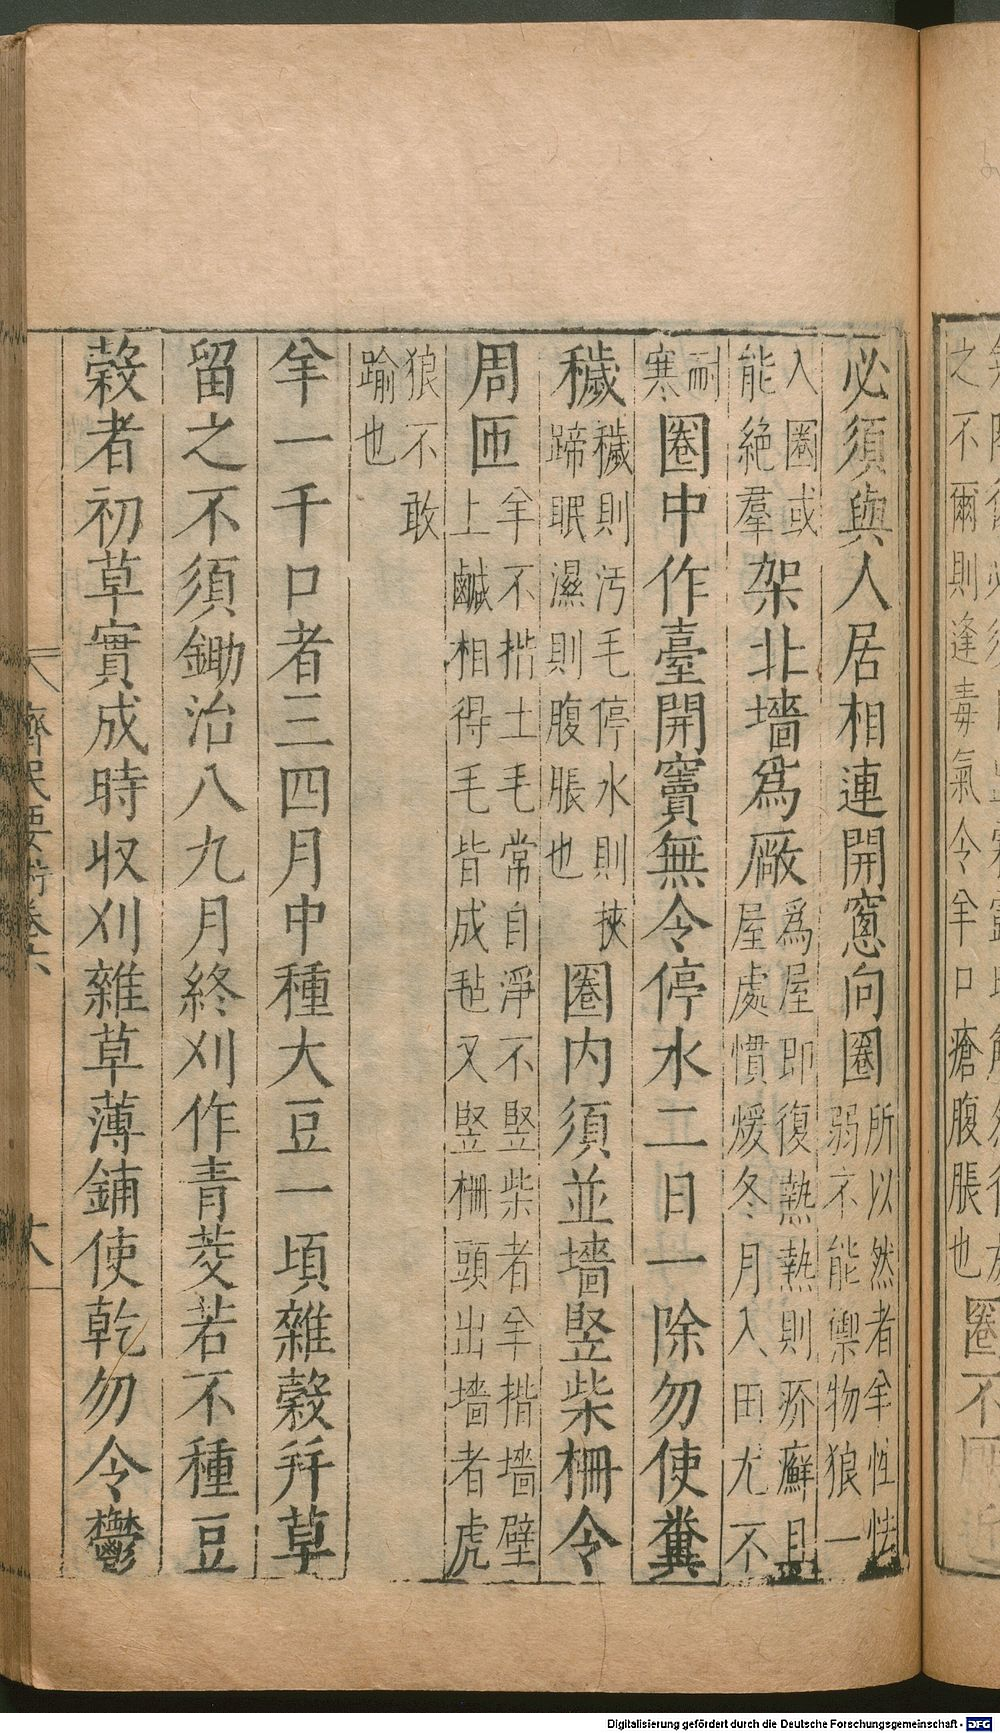 之不爾則逢毒氣令羊口瘡腹脹也圈不
必須與人居相連開窻向圈所以然者羊性怯
弱不能禦物狼一
入圈或
能絶羣架北墻爲厰爲屋即復熱熱則疥癬且
屋處慣煖冬月入田尤不
耐
寒圈中作臺開竇無令停水二日一除勿使糞
穢穢則污毛停水則挾
蹄眠濕則腹脹也圈内須並墻竪柴柵令
周匝羊不揩土毛常自淨不竪柴者羊揩墻壁
上鹹相得毛皆成毡又竪柵頭出墻者虎
狼不敢
踰也
羊一千口者三四月中種大豆一頃雜穀幷草
留之不須鋤治八九月終刈作青茭若不種豆
穀者初草實成時收刈雜草薄鋪使乾勿令鬱
齊民要術卷六
Digitalisierung gefördert durch die Deutsche Forschungsgemeinschaft - DFG